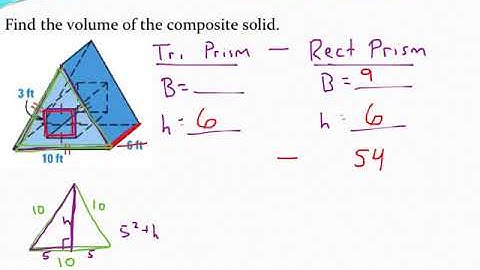 Find the volume of the composite solid.
Tri Prism — Rect Prism
B = ____ B = 9
h = 6 h = 6
3 ft
10 ft 6 ft
— 54
10 h 10
5 5
10
5² + h